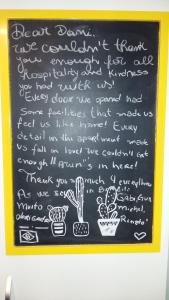 Dear Dani.
We couldn't thank
you enough for all
hospitality and kindness
you had with us!
Every
Some facilities that made us
feel us like home! Every
detail in the apartment made
us fall in love! We couldn't eat
enough in here!
Thank you so much 4 everything
As we say in
Muito
obrigado